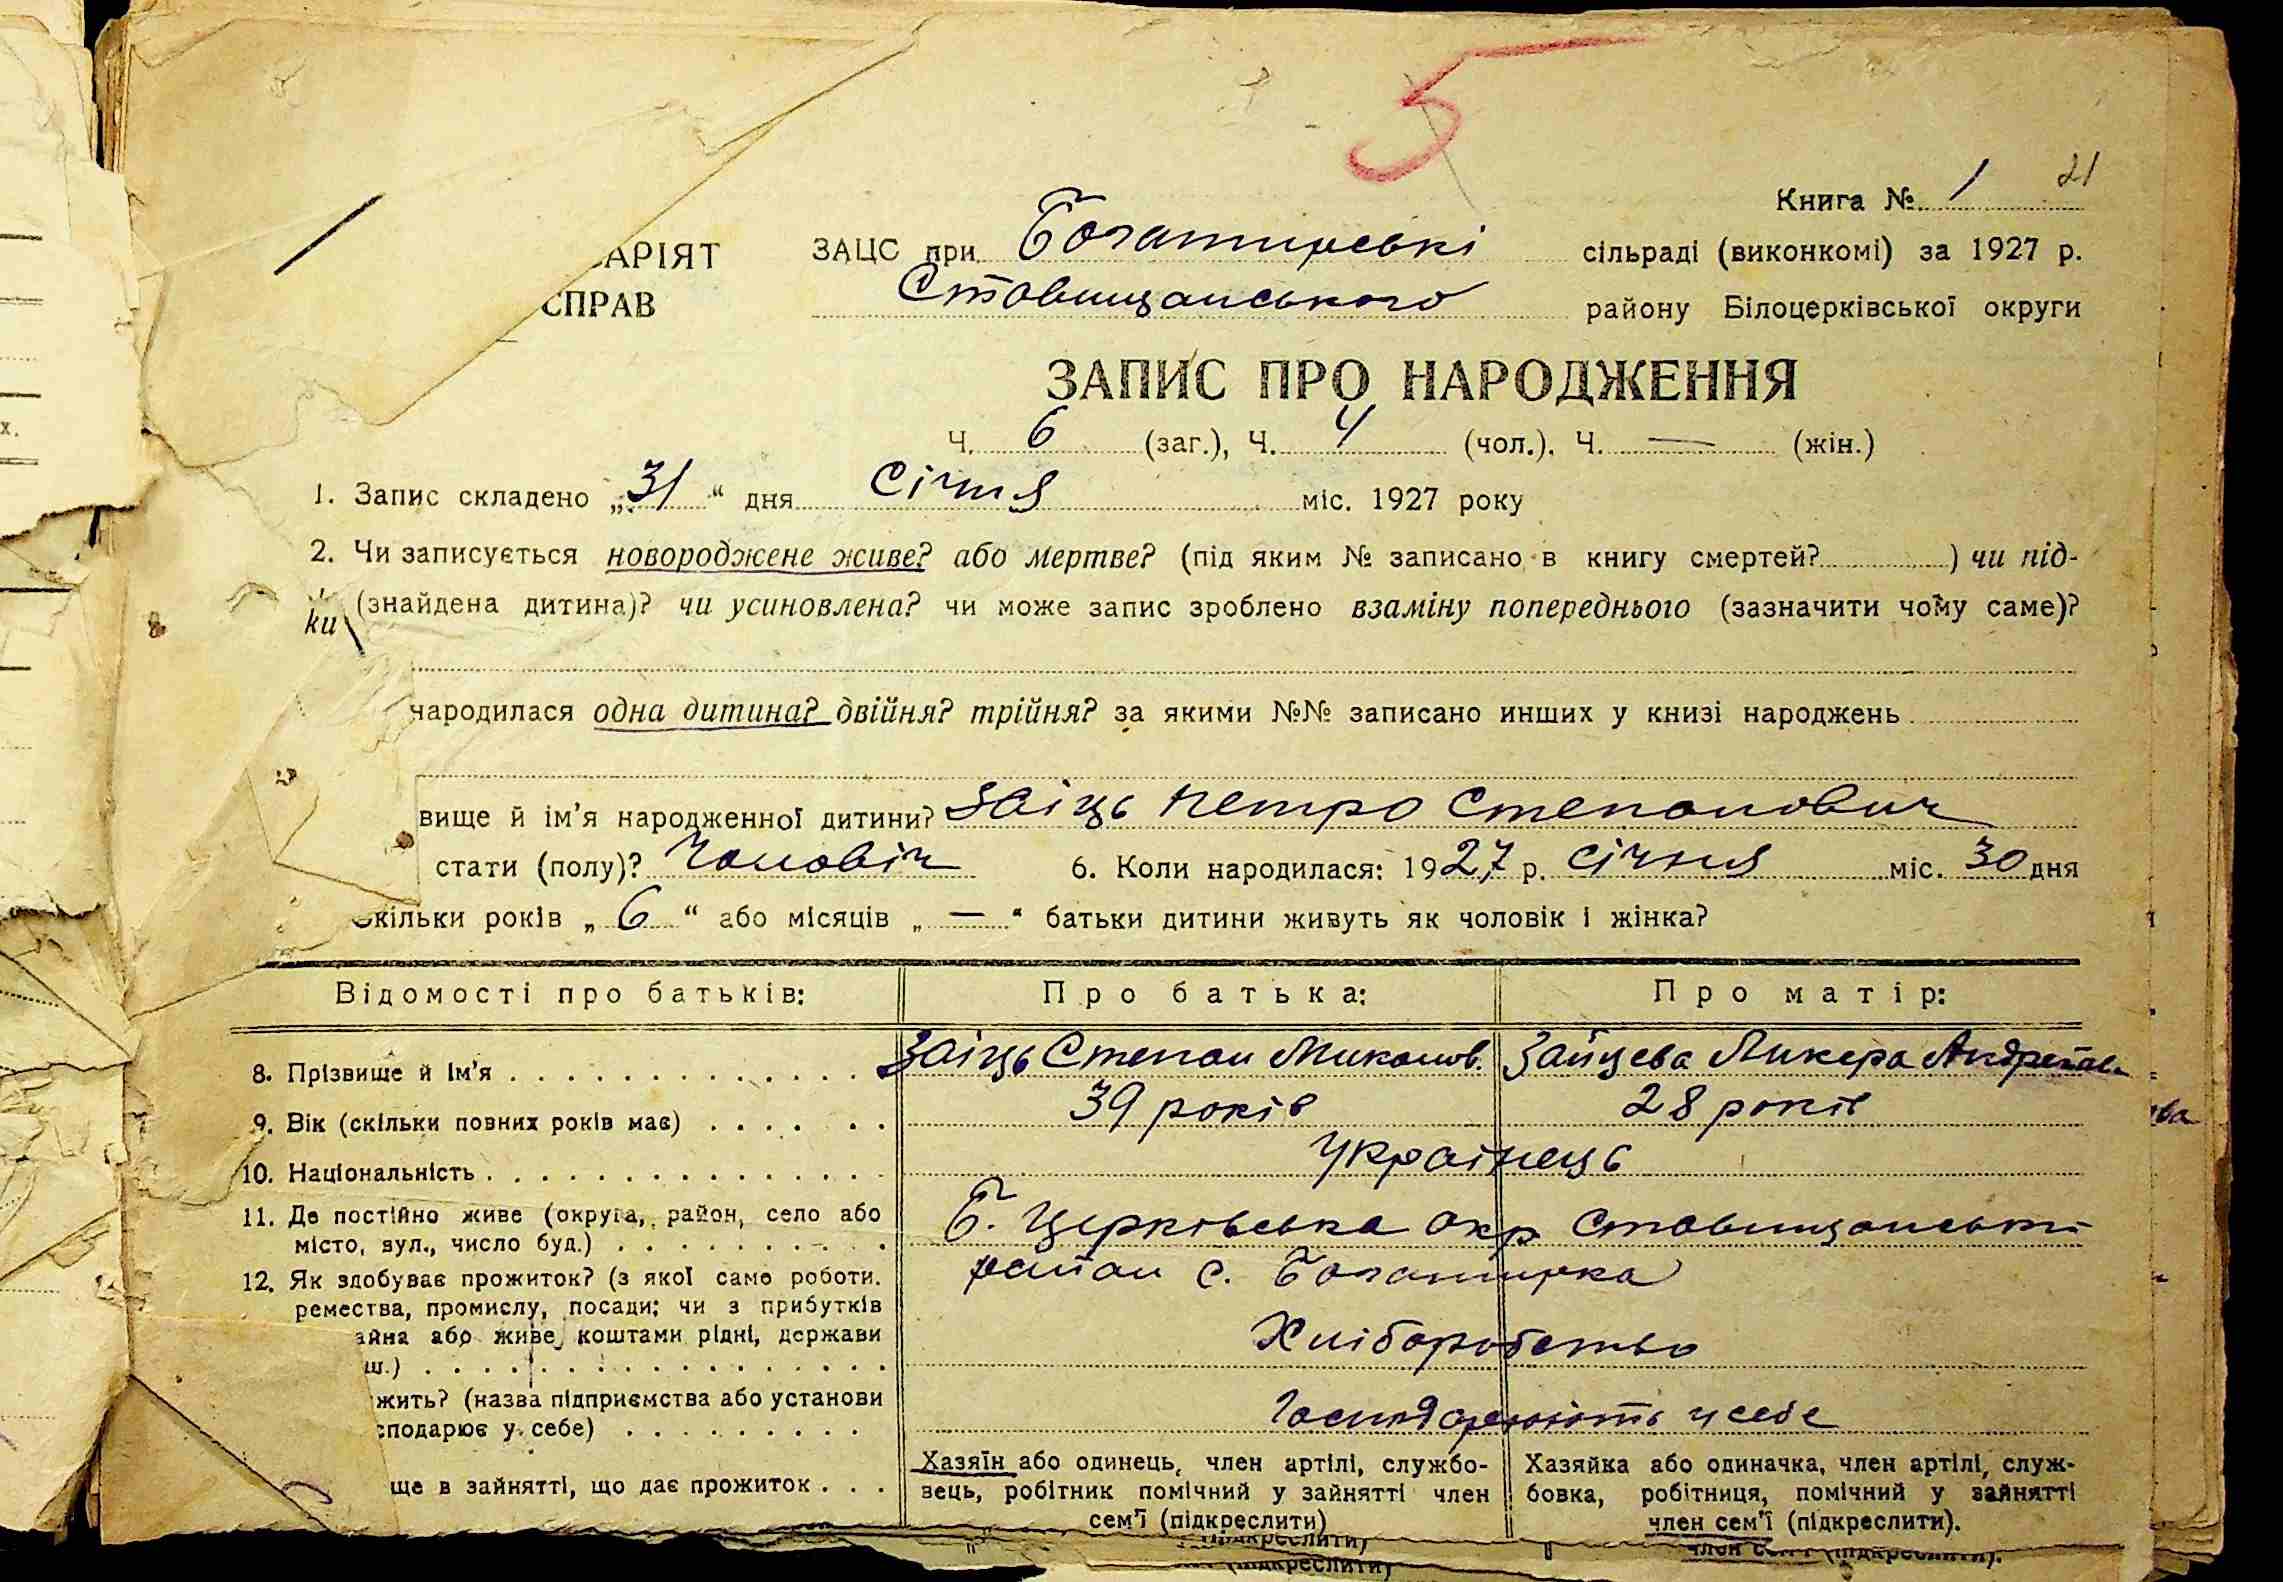 5
Книга № 1 21
АРІЯТ ЗАЦС при Богатирські сільраді (виконкомі) за 1927 р.
СПРАВ Ставищанського району Білоцерківської округи
ЗАПИС ПРО НАРОДЖЕННЯ
Ч. 6 (заг.), Ч. 4 (чол.). Ч. — (жін.)
1. Запис складено „31“ дня Січня міс. 1927 року
2. Чи записується новороджене живе? або мертве? (під яким № записано в книгу смертей? ) чи під-
ки (знайдена дитина)? чи усиновлена? чи може запис зроблено взаміну попереднього (зазначити чому саме)?
народилася одна дитина? двійня? трійня? за якими №№ записано инших у книзі народжень
вище й ім'я народженної дитини? Заіць Петро Степанович
стати (полу)? Чоловіч 6. Коли народилася: 1927 р. Січня міс. 30 дня
скільки років „6“ або місяців „—“ батьки дитини живуть як чоловік і жінка?
Відомості про батьків: Про батька: Про матір:
8. Прізвище й ім'я . . . . . . . . . . . . . . Заіць Степан Миколов. Зайцева Ликера Андреєв.
9. Вік (скільки повних років має) . . . . . . 39 років 28 років
ва
10. Національність . . . . . . . . . . . . . . . Українець
11. Де постійно живе (округа, район, село або Б. Церківська окр Ставищанський
місто, вул., число буд.) . . . . . . . . . . район с. Богатирка
12. Як здобуває прожиток? (з якої само роботи.
ремества, промислу, посади; чи з прибутків
айна або живе коштами рідні, держави Хліборобство
ш.) . . . . . . . . . . . . . . . . . .
жить? (назва підприємства або установи
сподарює у себе) . . . . . . . . . Господарюють у себе
ще в зайнятті, що дає прожиток . . .
Хазяїн або одинець, член артілі, службо-
вець, робітник помічний у зайнятті член
сем'ї (підкреслити)
Хазяйка або одиначка, член артілі, служ-
бовка, робітниця, помічний у зайнятті
член сем'ї (підкреслити).
(підкреслити)
член сем'ї (підкреслити).
(підкреслити)